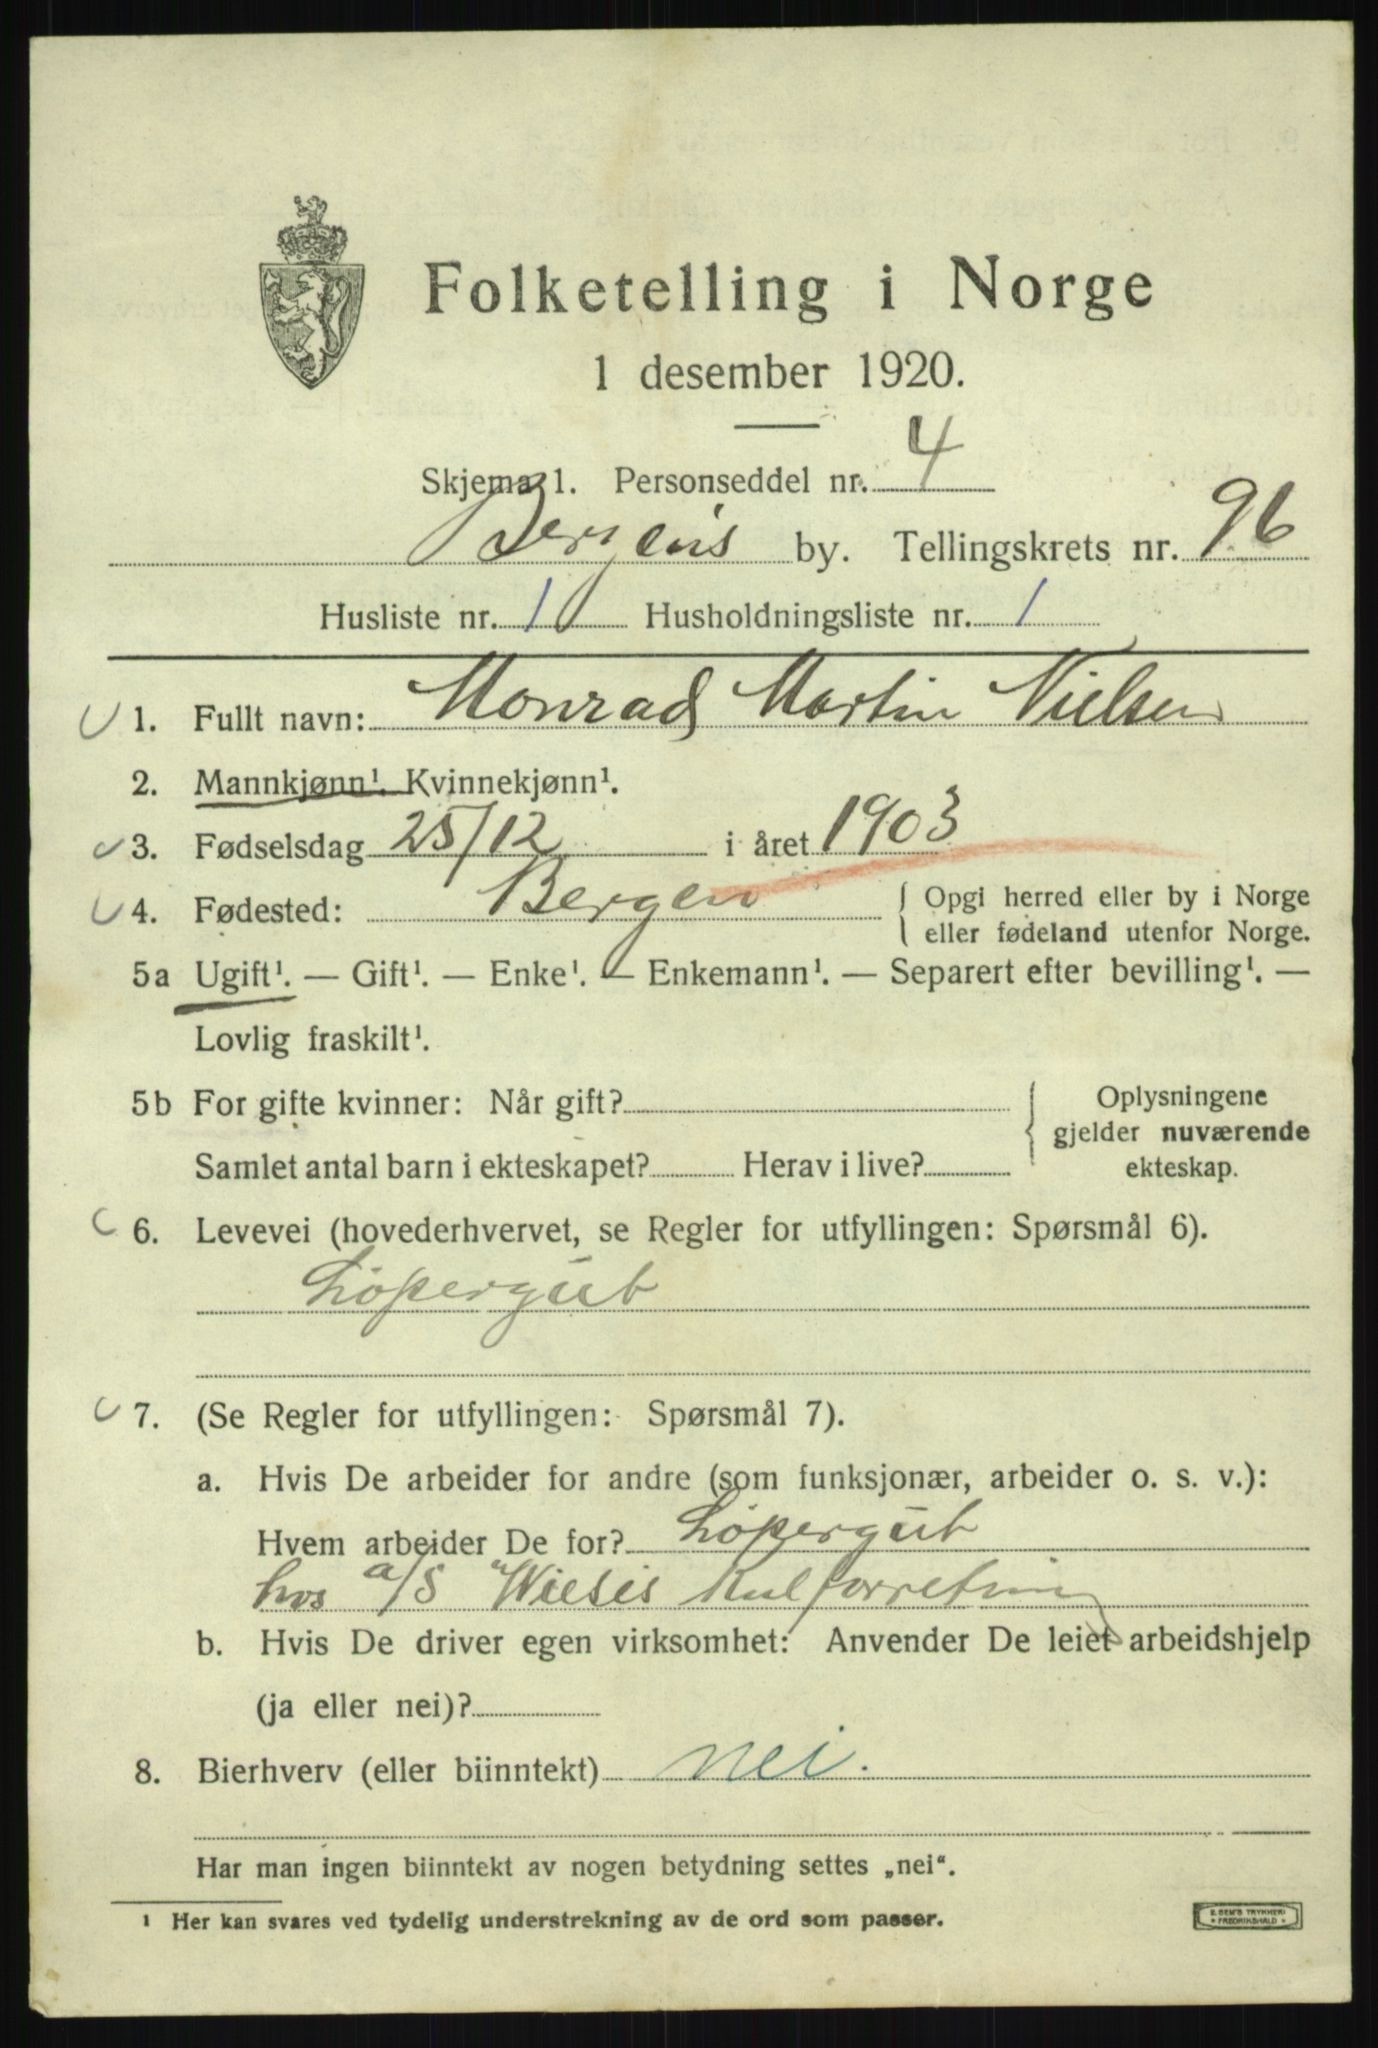 Folketelling i Norge
1 desember 1920.
Skjema 1. Personseddel nr. 4
Bergens by. Tellingskrets nr. 96
Husliste nr. 1 Husholdningsliste nr. 1
1. Fullt navn: Monrad Martin Nielsen
2. Mannkjønn¹. Kvinnekjønn¹.
3. Fødselsdag 25/12 i året 1903
4. Fødested: Bergen { Opgi herred eller by i Norge
eller fødeland utenfor Norge.
5a Ugift¹. — Gift¹. — Enke¹. — Enkemann¹. — Separert efter bevilling¹. —
Lovlig fraskilt¹.
5b For gifte kvinner: Når gift? { Oplysningene
gjelder nuværende
Samlet antal barn i ekteskapet? Herav i live? ekteskap.
6. Levevei (hovederhvervet, se Regler for utfyllingen: Spørsmål 6).
Löpergut
7. (Se Regler for utfyllingen: Spørsmål 7).
a. Hvis De arbeider for andre (som funksjonær, arbeider o. s. v.):
Hvem arbeider De for? Löpergut
hos a/s Wieses Kulforretning
b. Hvis De driver egen virksomhet: Anvender De leiet arbeidshjelp
(ja eller nei)?
8. Bierhverv (eller biinntekt) nei.
Har man ingen biinntekt av nogen betydning settes „nei“.
¹ Her kan svares ved tydelig understrekning av de ord som passer.
E. SEM'S TRYKKERI
* FREDRIKSHALD *